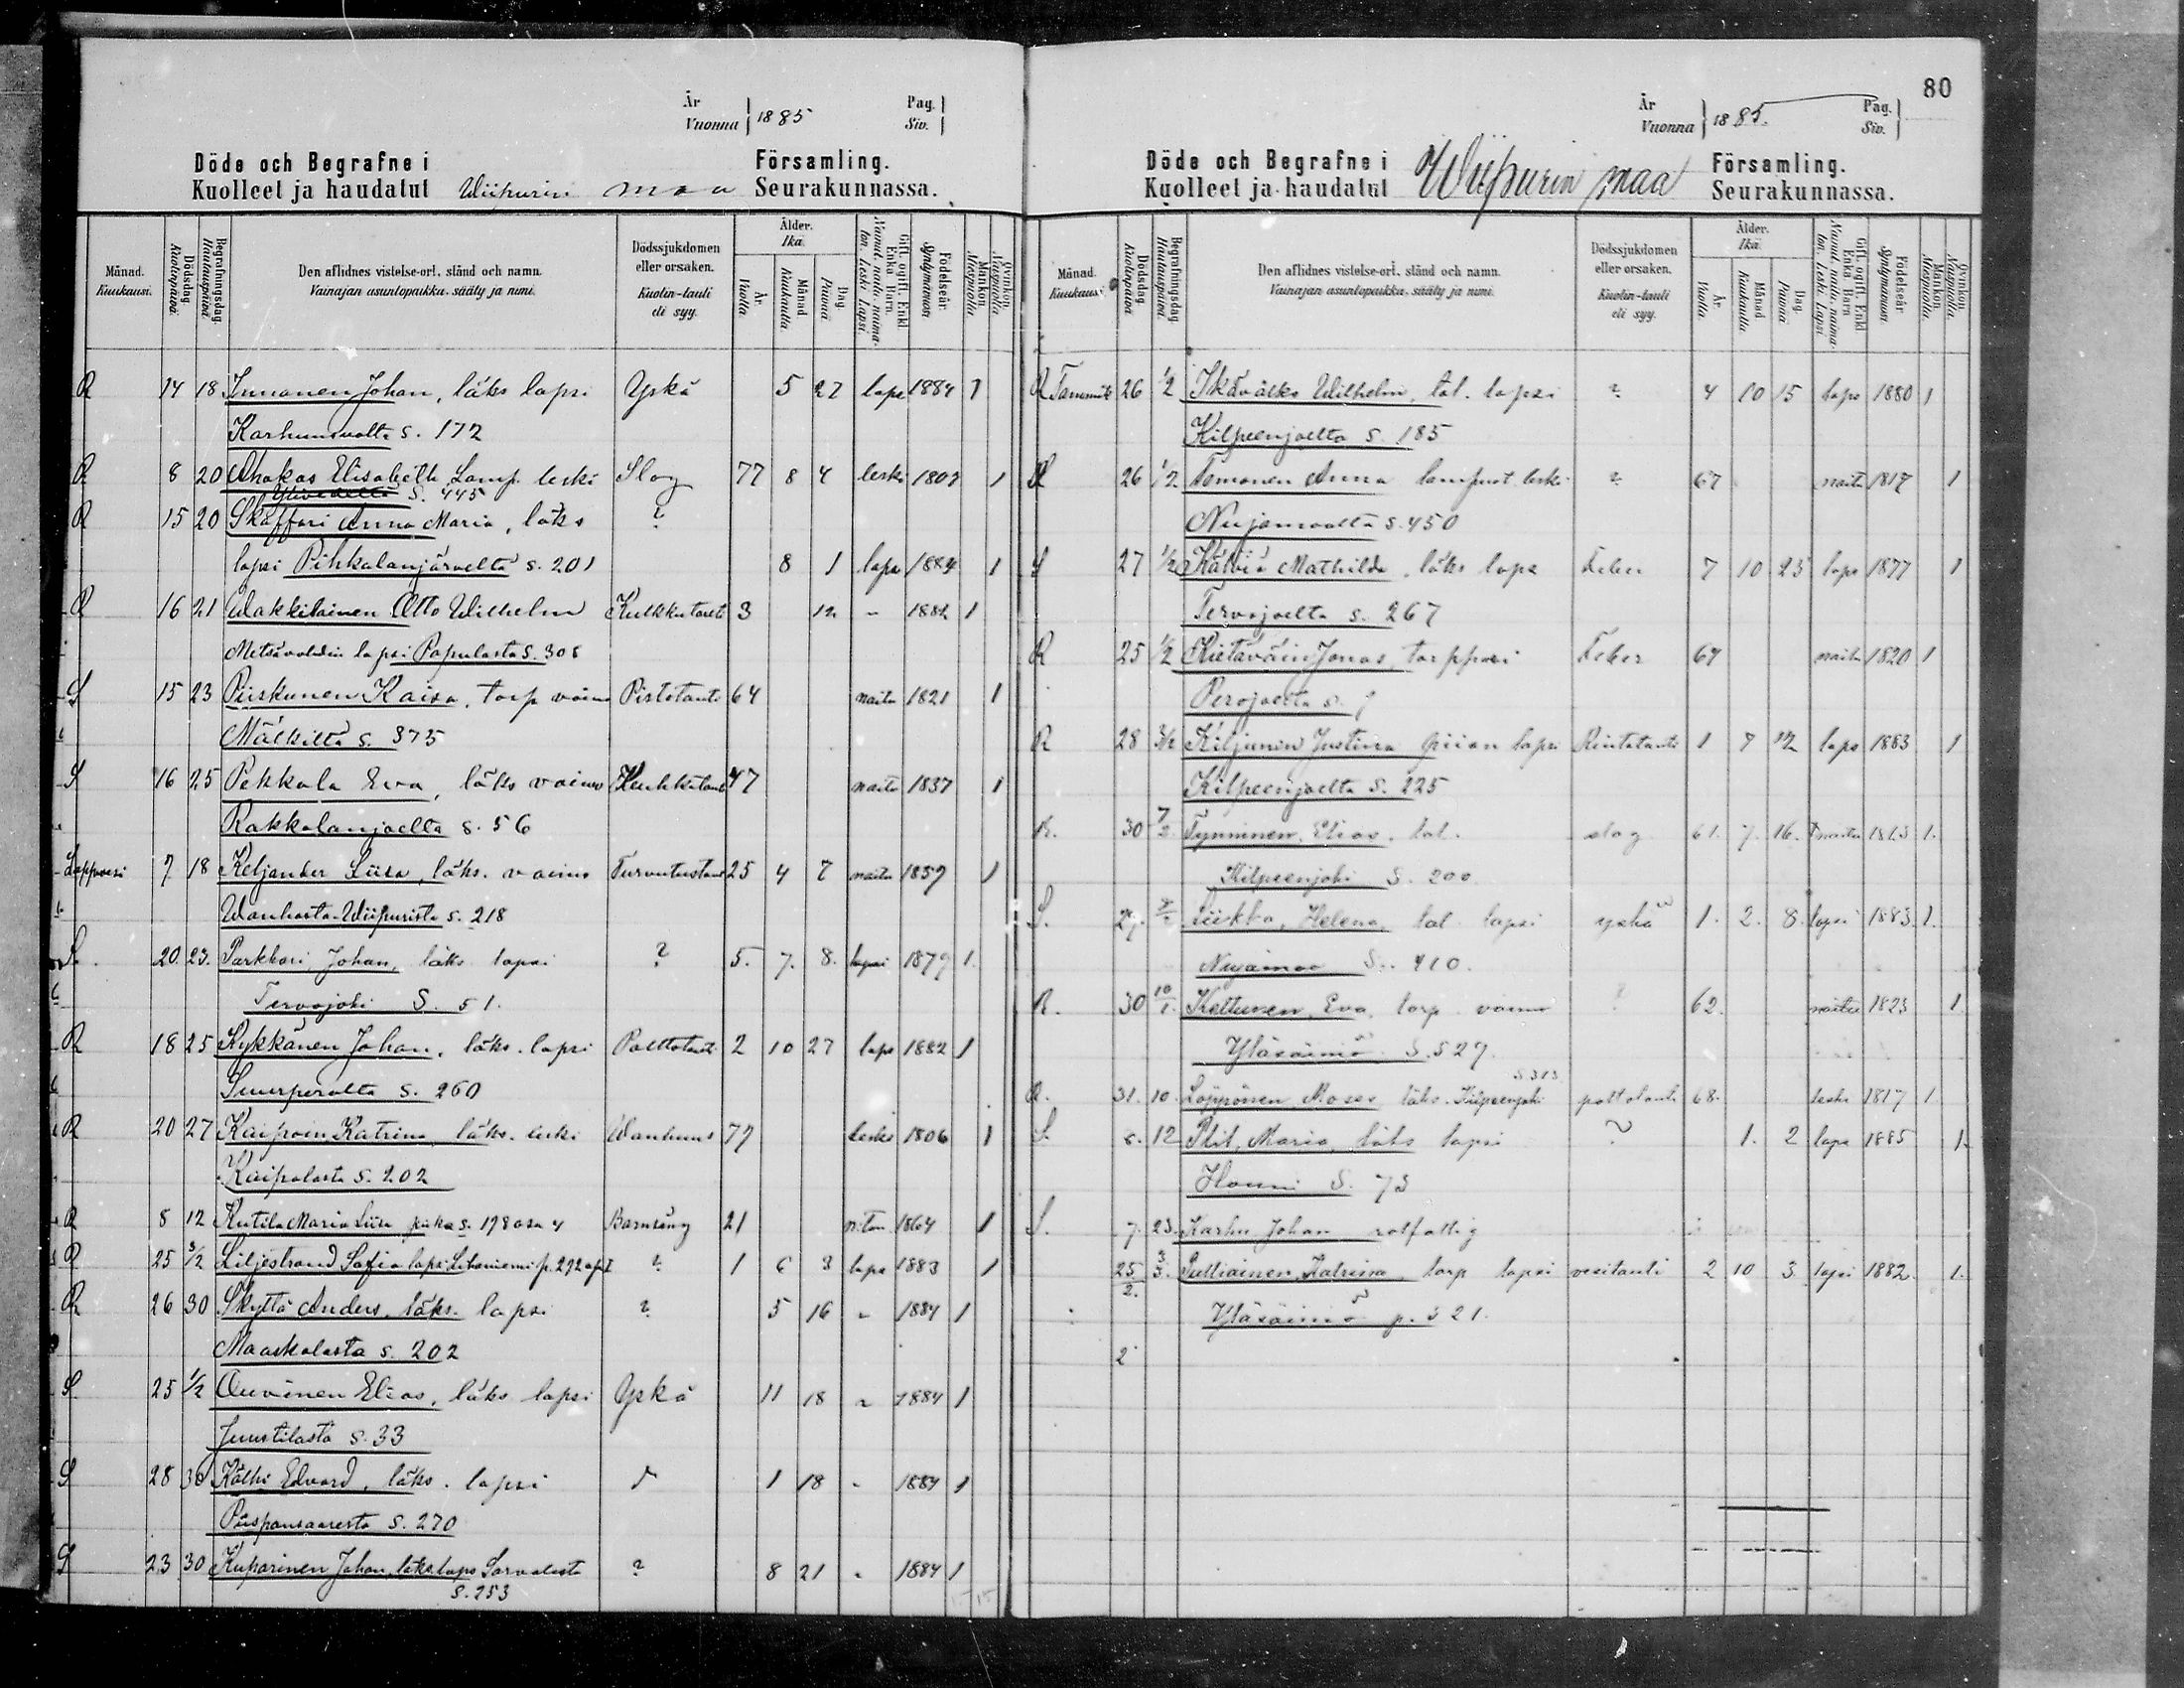 År
Vuonna } 1885 Pag.
Siv. }
Döde och Begrafne i Församling.
Kuolleet ja haudatut Wiipurin maa Seurakunnassa.
Månad. Kuukausi.
Dödsdag. Kuolinpäivä.
Begrafningsdag. Hautauspäivä.
Den aflidnes vistelse-ort, stånd och namn.
Vainajan asuntopaikka, sääty ja nimi.
Dödssjukdomen eller orsaken.
Kuolin-tauti eli syy.
Ålder. Ikä.
År. Vuotta.
Månad. Kuukautta.
Dag. Päivää.
Gift, ogift, Enkl. Enka Barn.
Födelseår. Syntymävuosi.
Mankön. Miespuolia.
Qvinkön. Naispuolia.
R 14 18 Innanen Johan, läks lapsi Yskä 5 27 laps 1884 1
Karhusuolta s. 172
R 8 20 Ahokas Elisabeth Lamp. leski Slag 77 8 4 leski 1807 1
S. 445
R 15 20 Skaffari Anna Maria, läks ?
lapsi Pihkalanjärveltä s. 201 8 1 laps 1884 1
R 16 21 Wakkilainen Otto Wilhelm Kulkkutauti 3 12 " 1882 1
Metsävahdin lapsi Papulasta S. 308
S 15 23 Piiskunen Kaisa, torp vaimo Pistotauti 64 naitu 1821 1
Mälkiltä s. 375
S 16 25 Pekkala Eva, läks vaimo 47 naitu 1837 1
Rakkalanjoelta s. 56
7 18 Keljander Liisa, läks. vaimo 25 4 7 naitu 1859 1
Wanhasta-Wiipurista s. 218
S. 20. 23. Parkkari Johan, läks lapsi ? 5. 7. 8. lapsi 1879 1.
Tervajoki S. 51.
R 18 25 Kykkänen Johan, läks. lapsi Polttotauti 2 10 27 laps 1882 1
Suurperolta s. 260
R 20 27 Kaipiain Katrina, läks. leski Wanhuus 79 leski 1806 1
Kaipolasta s. 202
R 8 12 Kutila Maria Liisa piika s. 198 osa 4 Barnsäng 21 n:ton 1864 1
R 25 3/2 Liljestrand Sofia lapsi Lihaniemi p. 292 ? 1 6 3 laps 1883 1
R 26 30 Skyttä Anders, läks. lapsi ? 5 16 " 1884 1
Maaskolasta s. 202
S 25 1/2 Auvinen Elias, läks lapsi Yskä 11 18 " 1884 1
Juustilasta s. 33
S 28 30 Käthi Edvard, läks. lapsi 1 18 " 1884 1
Piispansaaresta s. 270
S 23 30 Kuparinen Johan, läks. laps Sarvalasta ? 8 21 " 1884 1
S. 253
80
År
Vuonna } 1885. Pag.
Siv. }
Döde och Begrafne i Församling.
Kuolleet ja haudatut Wiipurin maa Seurakunnassa.
Månad. Kuukausi.
Dödsdag. Kuolinpäivä.
Begrafningsdag. Hautauspäivä.
Den aflidnes vistelse-ort, stånd och namn.
Vainajan asuntopaikka, sääty ja nimi.
Dödssjukdomen eller orsaken.
Kuolin-tauti eli syy.
Ålder. Ikä.
År. Vuotta.
Månad. Kuukautta.
Dag. Päivää.
Gift, ogift, Enkl. Enka Barn
Födelseår. Syntymävuosi.
Mankön. Miespuolia.
Qvinkön. Naispuolia.
R Tammik 26 1/2 Ikävalko Wilhelm, tal. lapsi ? 4 10 15 laps 1880 1
Kilpeenjoelta s. 185
26 1/2 Tomonen Anna lampuot. leski ? 67 naitu 1817 1
Nuijamaalta s. 450
S 27 1/2 Kälviä Mathilda, läks laps Feber 7 10 23 laps 1877 1
Tervajoelta s. 267
R 25 1/2 Kietäväin Jonas, torppari Feber 64 naitu 1820 1
Perojoelta s.
R 28 3/2 Kiljunen Justina piian lapsi Rintatauti 1 7 12 laps 1883 1
Kilpeenjoelta s. 225
R. 30 7/2 Tynninen, Elias, tal. slag 61. 7. 16. naitu 1823 1.
Kilpeenjoki S. 200
S. 27. Liikka, Helena, tal. lapsi yskä 1. 2. 8. lapsi 1883. 1.
Nuijamaa S. 410.
R. 30 10/1. Kettunen, Eva, torp. vaimo ? 62. naitu 1823 1.
Yläsäiniö S. 527.
S 313
R. 31. 10. Löppönen, Moses, läks. Kilpeenjoki polttotauti 68. leski 1817 1.
S. 8. 12 Plit, Maria, läks lapsi ? 1. 2 laps 1885 1.
Hounni S. 73
S. 7. 23. Karhu Johan rotfattig
25/2. 3/3. Pulliainen, Katrina, torp lapsi vesitauti 2 10 3. lapsi 1882. 1.
Yläsäiniö p. 521.
2